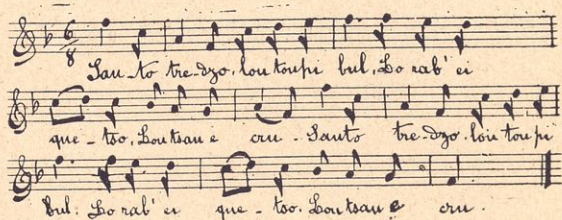 6
8
Sau-to tre-dzo, lou toupi bul, Lo rab' ei
que-tso, Lou tsau e cru - Sauto tre-dzo, lou toupi
bul: Lo rab' ei que-tso. Lou tsau e cru.